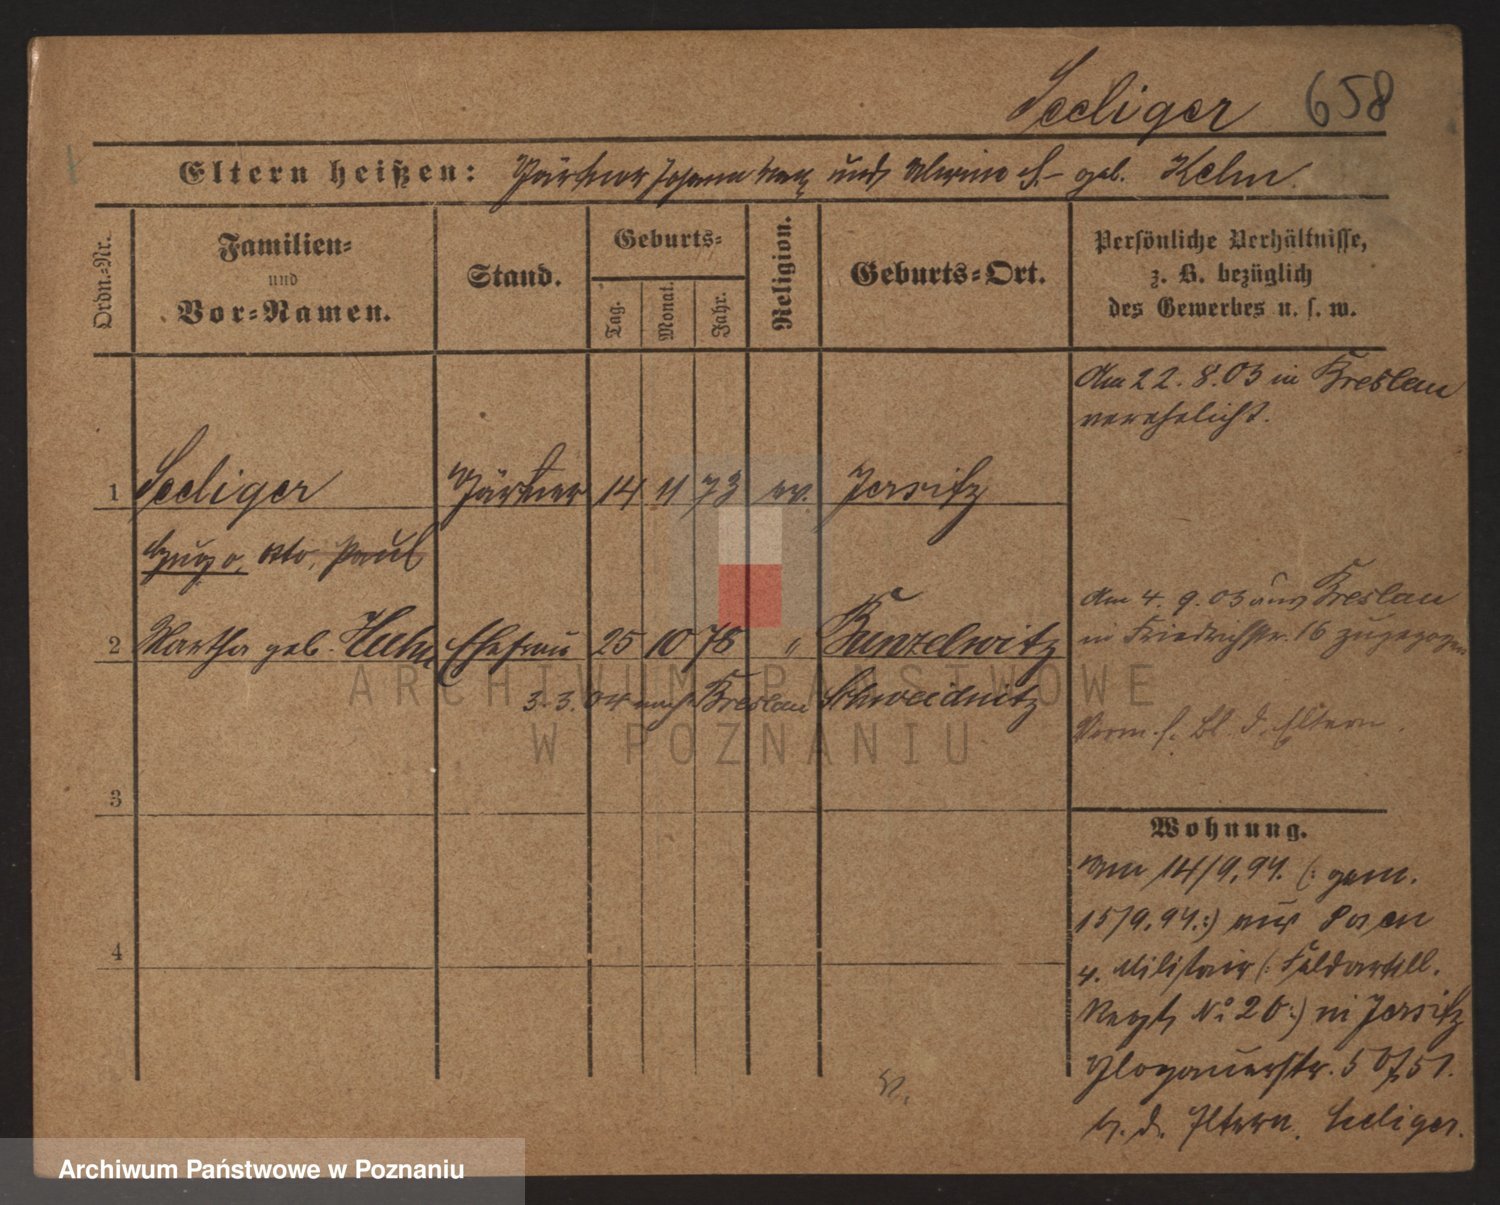 Seeliger 658
Eltern heißen: Gärtner Johann und geb. Kelm.
Ordn.-Nr.
Familien-
und
Vor-Namen.
Stand.
Geburts-
Tag.
Monat.
Jahr.
Religion.
Geburts-Ort.
Persönliche Verhältnisse,
z. B. bezüglich
des Gewerbes u. s. w.
Am 22. 8. 03 in Breslau
verehelicht.
1 Seeliger Gärtner 14 11 73 ev. Jersitz
Hugo, Otto, Paul
Am 4. 9. 03 aus Breslau
in Friedrichstr. 16 zugezogen
2 Martha geb. Ehefrau 25 10 78 " Kunzelwitz
3. 3. 04 nach Breslau Schweidnitz
Vorm. s. Bl. d. Eltern.
3
Wohnung.
Am 14/9. 94. (: gem.
15/9. 94. :) aus Posen
v. Militair (: Feldartill.
4
Regt. No 20 :) in Jersitz
Glogauerstr. 50/51.
b. d. Eltern. Seeliger.
ARCHIWUM PAŃSTWOWE
W POZNANIU
Archiwum Państwowe w Poznaniu